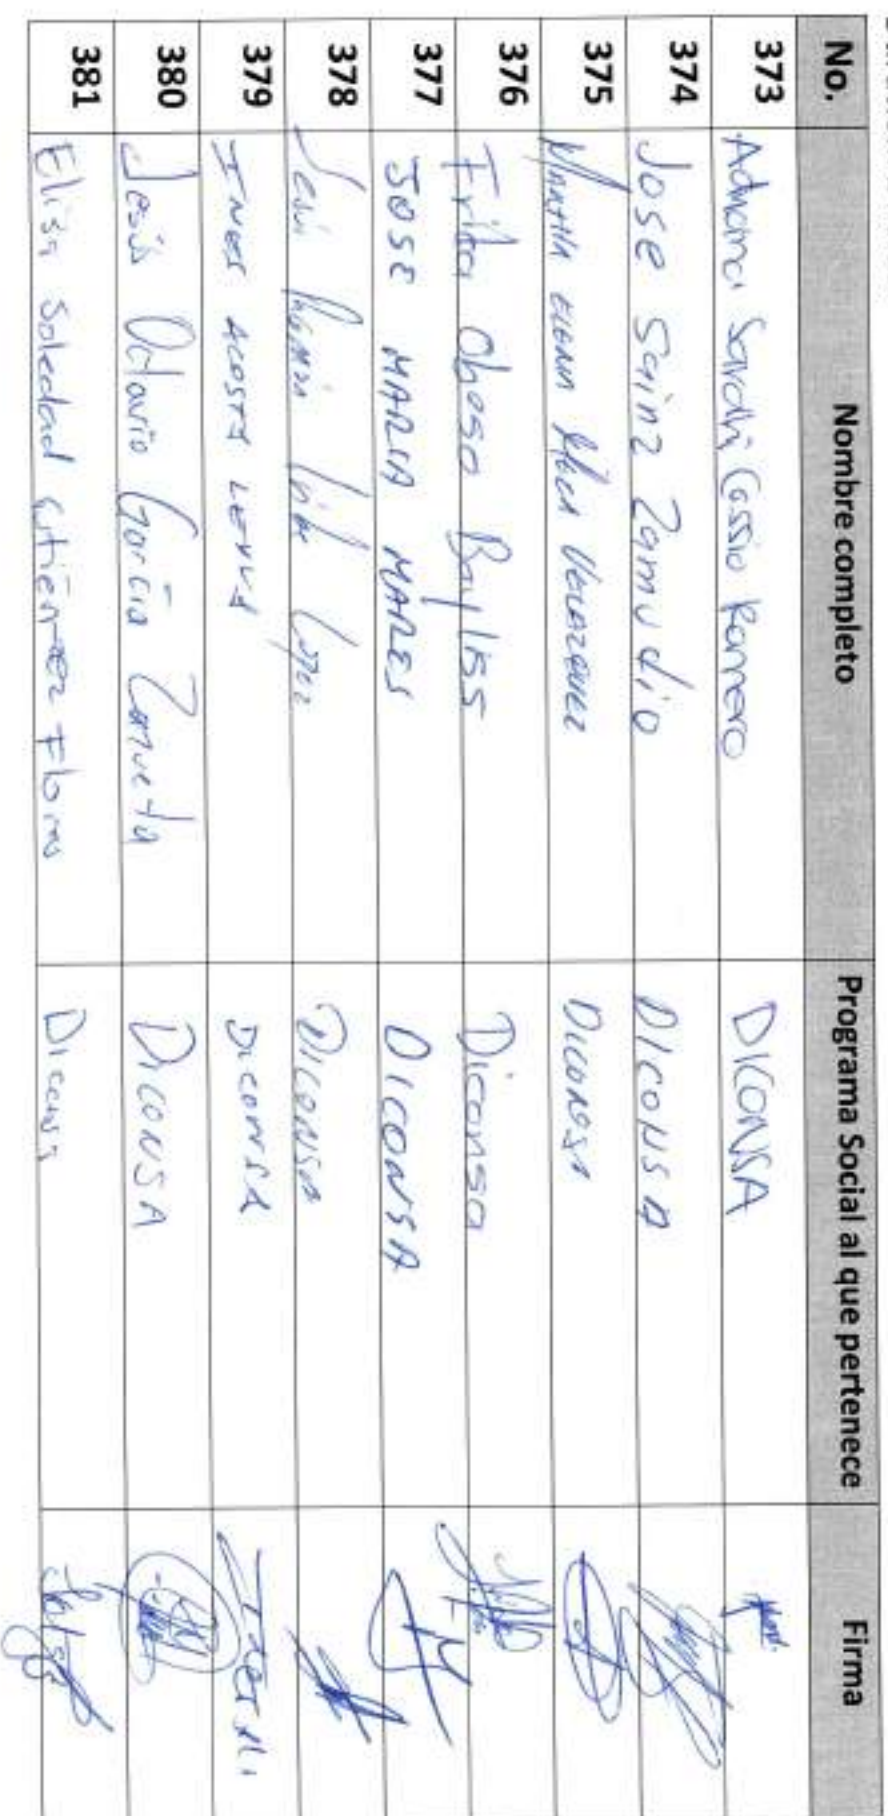 No. Nombre completo Programa Social al que pertenece Firma
373 Adriana Sarahi Cossio Romero DICONSA
374 Jose Sainz Zamudio DICONSA
375 Martha Elena Velazquez Diconsa
376 Obeso Bayliss Diconsa
377 JOSE MARIA MARES DICONSA
378 Ramón López DICONSA
379 INES ACOSTA LEYVA DICONSA
380 Jesús Octavio García Zazueta DICONSA
381 Elisa Soledad Gutiérrez Flores